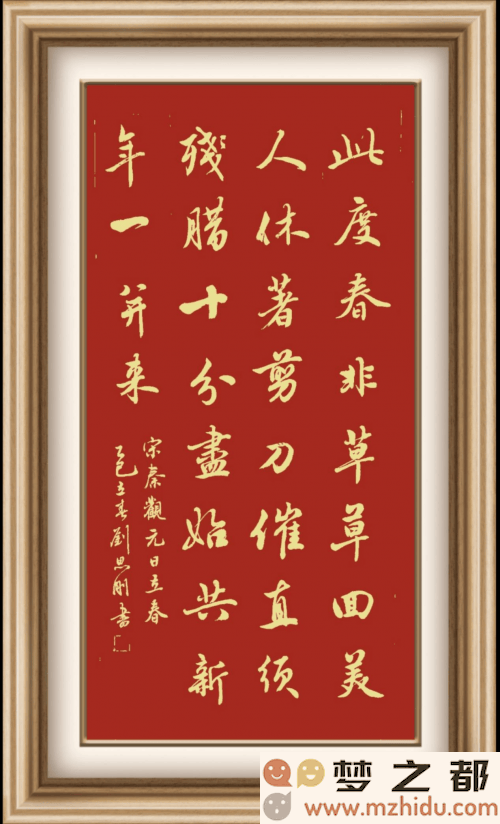 此度春非草草回美
人休著剪刀催直须
残腊十分盡始共新
年一并来
宋秦觀元日立春
乙巳立春劉思刚書
梦之都
www.mzhidu.com